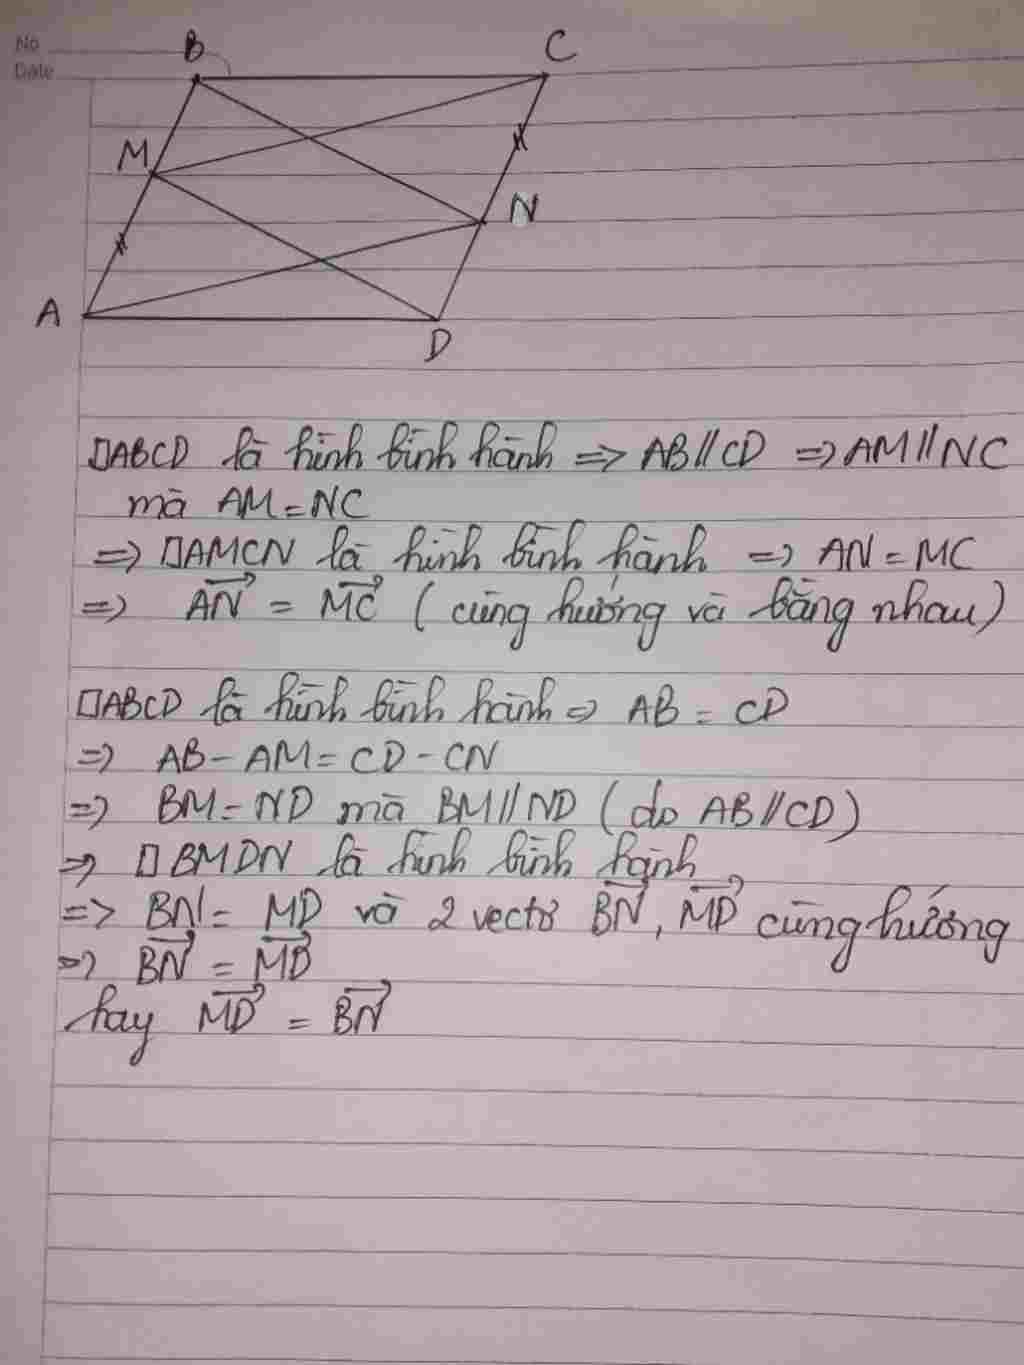 No
Date
B
C
M
N
A
D
□ABCD là hình bình hành => AB//CD => AM//NC
mà AM=NC
=> □AMCN là hình bình hành => AN=MC
=> \overrightarrow{AN} = \overrightarrow{MC} (cùng hướng và bằng nhau)
□ABCD là hình bình hành => AB = CD
=> AB-AM=CD-CN
=> BM=ND mà BM//ND (do AB//CD)
=> □BMDN là hình bình hành
=> BN = MD và 2 vectơ \overrightarrow{BN}, \overrightarrow{MD} cùng hướng
=> \overrightarrow{BN} = \overrightarrow{MD}
hay \overrightarrow{MD} = \overrightarrow{BN}